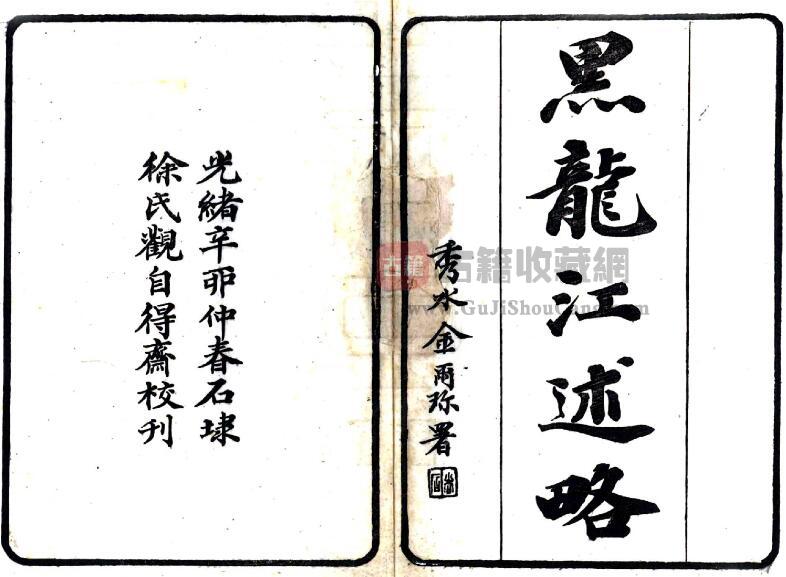 黑龍江述略
秀水金爾珎署
光緒辛卯仲春石埭
徐氏觀自得齋校刊
古籍
古籍收藏網